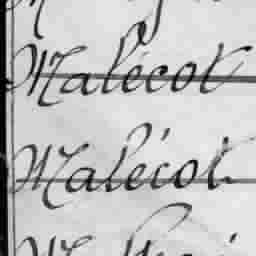 Malécot
Malécot